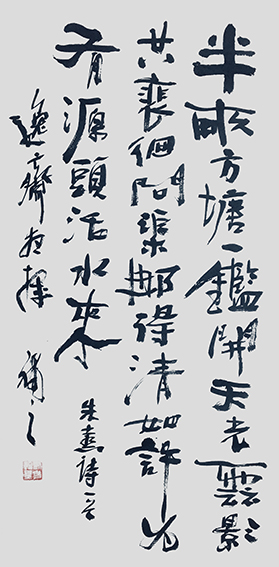 半畝方塘一鑑開天光雲影
共裵徊問渠那得清如許為
有源頭活水來
朱熹詩一首